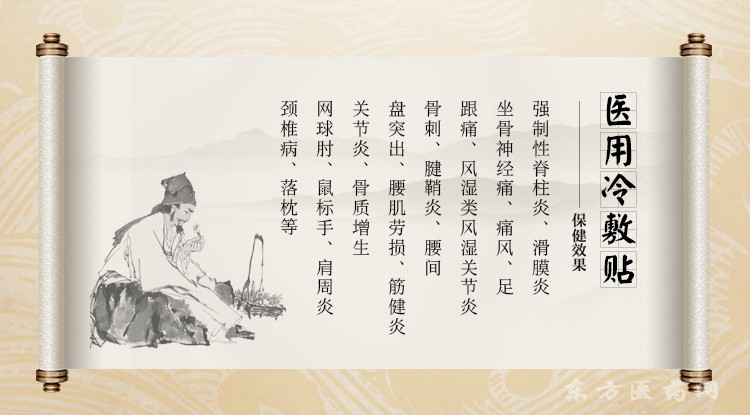 医用冷敷贴
保健效果
强制性脊柱炎、滑膜炎
坐骨神经痛、痛风、足
跟痛、风湿类风湿关节炎
骨刺、腱鞘炎、腰间
盘突出、腰肌劳损、筋健炎
关节炎、骨质增生
网球肘、鼠标手、肩周炎
颈椎病、落枕等
东方医药网